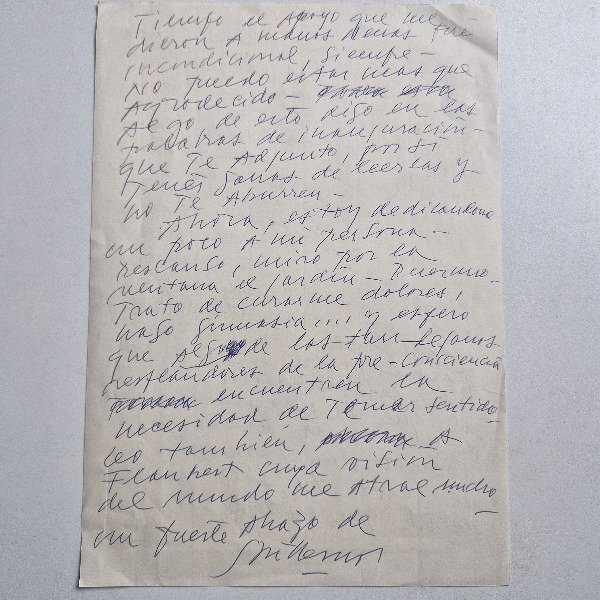 Tiempo el apoyo que me
dieron a manos llenas fue
incondicional, siempre-
No puedo estar mas que
Agradecido-
Algo de esto digo en las
palabras de inauguración-
que Te Adjunto, por si
Tenés Ganas de leerlas y
no Te Aburren-
Ahora, estoy dedicandome
un poco A mi persona-
Descanso, miro por la
ventana el jardín- Duermo-
Trato de curarme dolores,
hago gimnasia.... y espero
que de los tan lejanos
resplandores de la pre-consciencia
encuentren la
necesidad de Tomar sentido
Leo también, A
Flaubert cuya visión
del mundo me Atrae mucho-
un fuerte Abrazo de
Guillermo